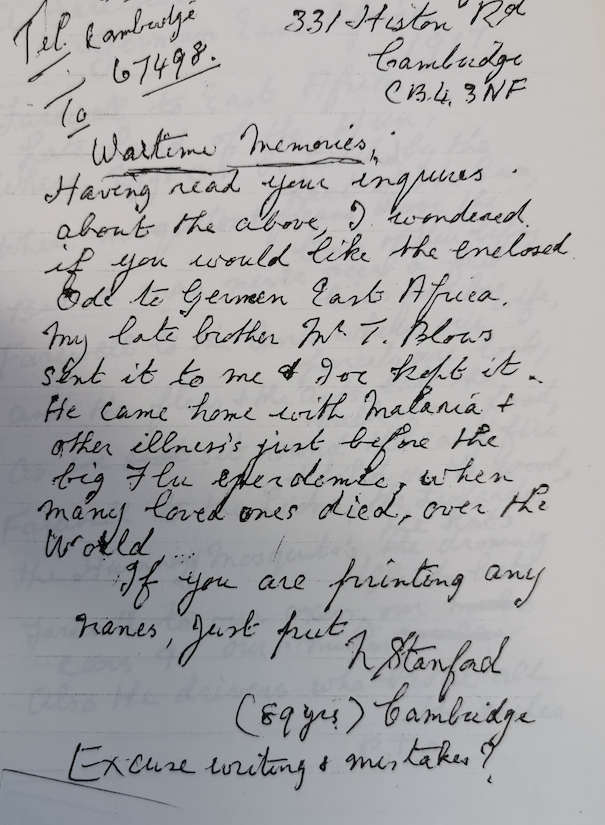 Tel. Cambridge
67498.
331 Histon Rd
Cambridge
CB4 3NF
To
Wartime Memories,
Having read your inquires.
about the above, I wondered.
if you would like the enclosed
Ode to German East Africa.
My late brother Mr T. Blows
sent it to me & I've kept it.
He came home with Malaria +
other illness's just before the
big Flu eperdemic, when
many loved ones died, over the
World...
If you are printing any
names, Just put
N Stanford
(89 yrs) Cambridge
Excuse writing & mistakes?